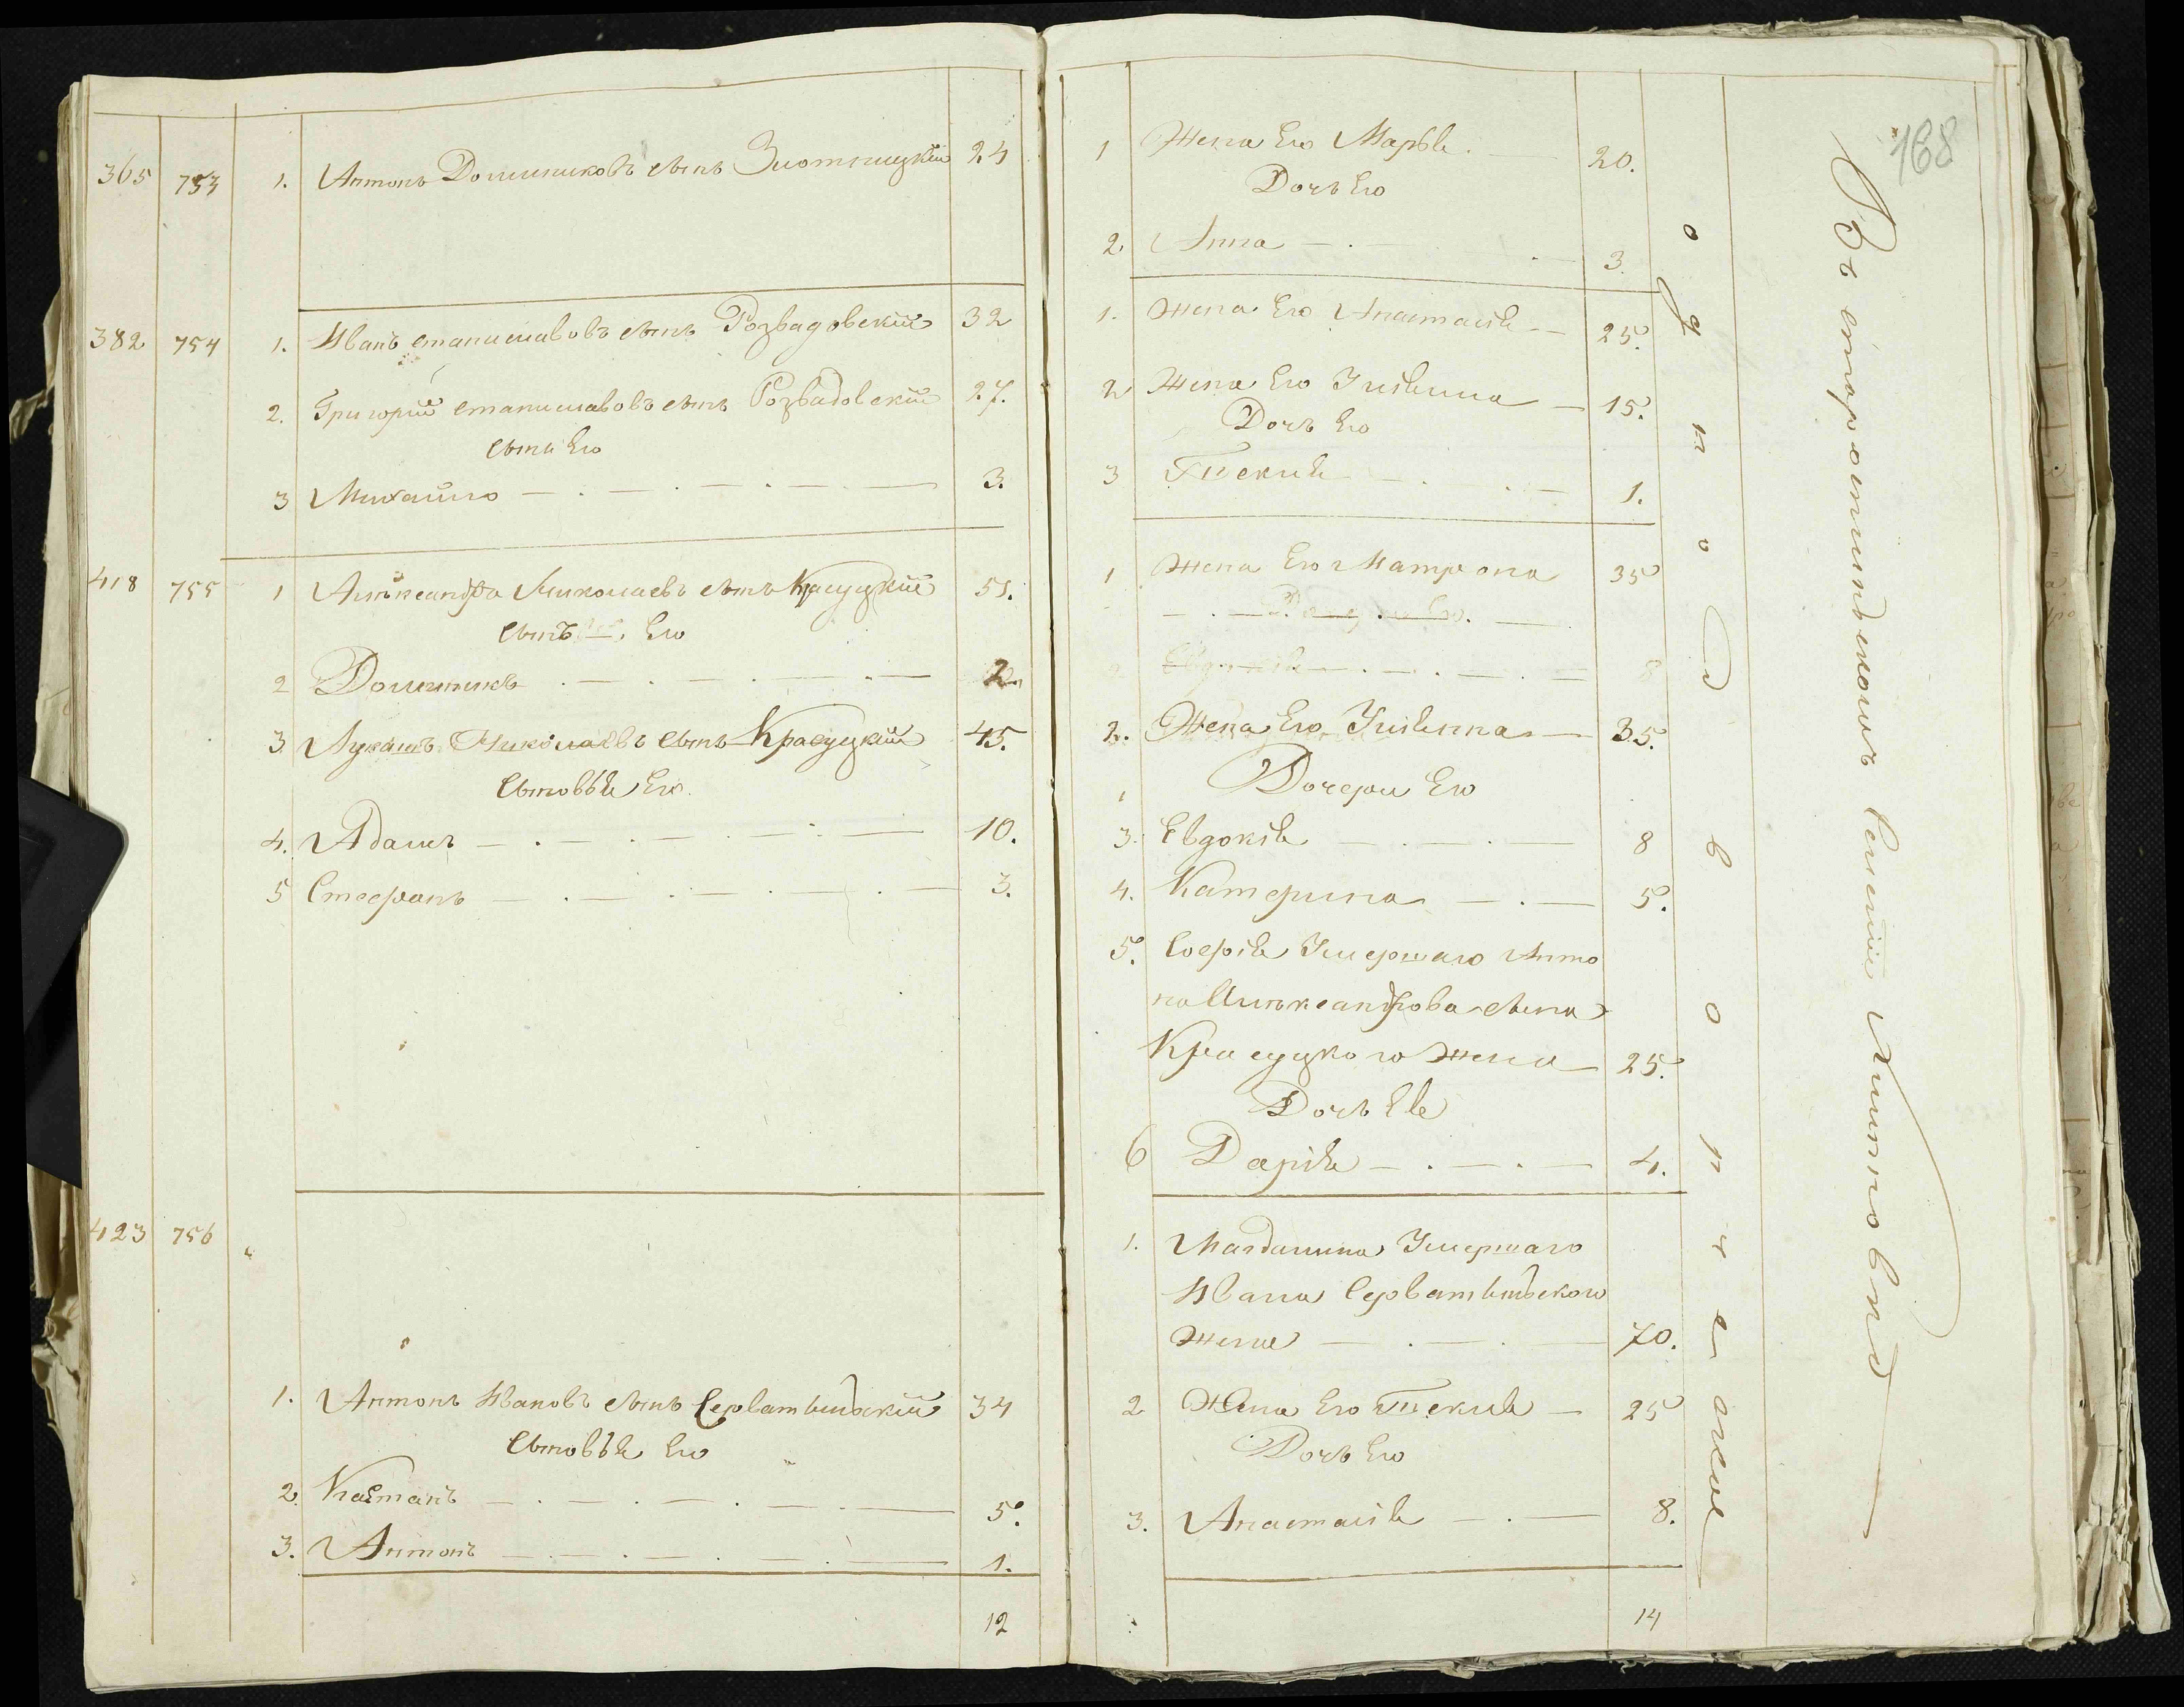 365 753 1. Антонъ Доминиковъ сынъ Злотницкій 24
382 754 1. Иванъ станиславовъ сынъ Розвадовскій 32
2. Григорій станиславовъ сынъ Розвадовскій 27.
сынъ Его
3 Михайло 3.
418 755 1 Алѣксандра Николаевъ сынъ Красуцкій 51.
сынъ Его
2 Доминикъ 2.
3 Лукашъ Николаевъ сынъ Красуцкій 45.
сыновья Его
4. Адамъ 10.
5 Стефанъ 3.
423 756 "
1. Антонъ Ивановъ сынъ Серватынскій 34
сыновья Его
2. Каетанъ 5.
3. Антонъ 1.
12
168
1 Жена Его Марья 20.
Дочь Его
2 Анна 3.
1. Жена Его Анастасія 25.
2 Жена Его Ульяна 15.
Дочь Его
3 Текля 1.
1 Жена Его Матрона 35
Евдокія 8
2. Жена Его Ульянна 35.
Дочери Его
3. Евдокія 8
4. Катерина 5.
5. Софія Умершаго Анто
на Алѣксандрова сына
Красуцкого жена 25.
Дочь Ея
6 Дарія 4.
1. Магдалина Умершаго
Ивана Серватынского
жена 70.
2 Жена Его Текля 25
Дочь Его
3. Анастасія 8.
14
однодворческое
Въ старостинскомъ селеніи